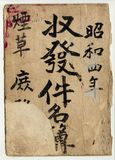 昭和四年
收發件名簿
煙草